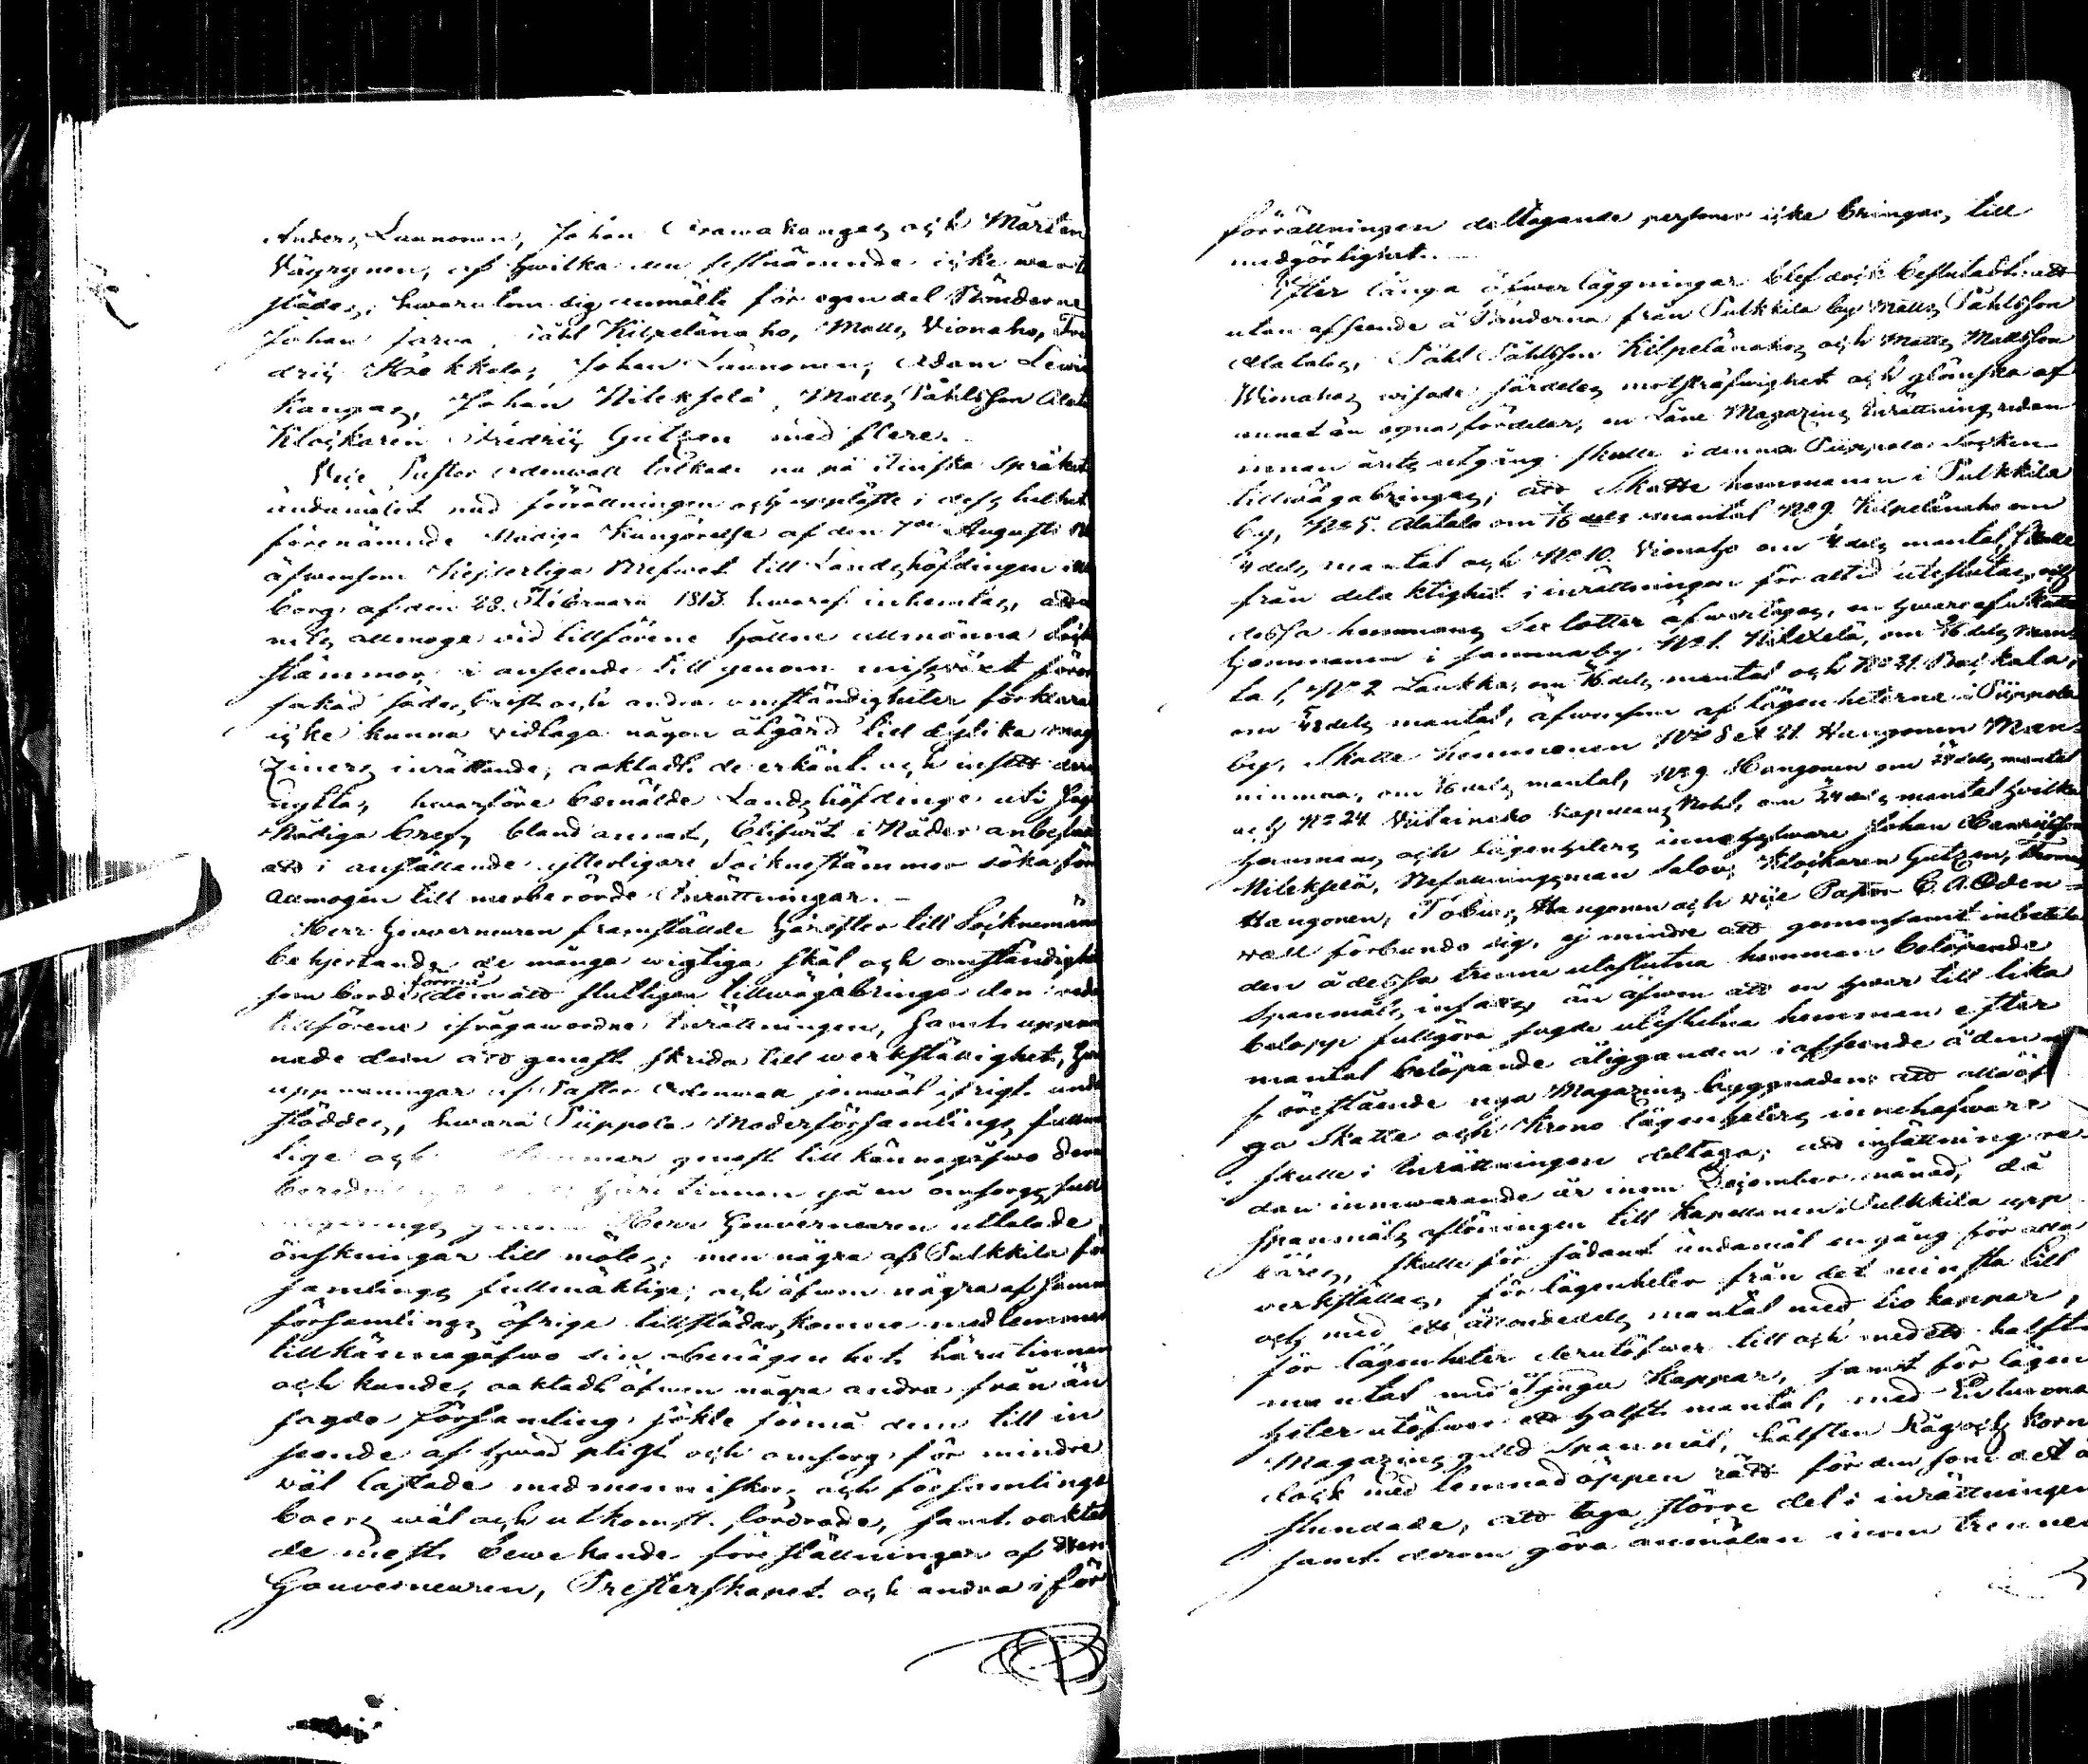 Anders Launonen, Johan Aravakangas och Mårten
Väyrynen, af hwilka den sistnämnde icke war till
städes, hwarutom sig anmälte för egen del Bönderne
Johan Jarva, Påhl Kilpelänaho, Matts Vionaho, Fre
dric Heikkala, Johan Launonen, Adam Lewä
kangas, Johan Nilekselä, Matts Påhlsson Alata
Klockaren Fredric Gutzen med flere.
Vice Pastor Adenwall tolkade nu på Finska språket
ändamålet med förrättningen och uppläste i dess helhet
förenämnde Nådiga Kungörelse af den 7de Augusti
äfwensom Kejserliga Brefwet till Landshöfdingen i
borg af den 28. Februarii 1813. hwaraf inhemtas,
nets allmoge wid tillförene hållne allmänna Sock
stämmor, i anseende till genom misswäxt föror
sakad sädes brist och andra omständigheter förklarat
icke kunna vidtaga någon åtgärd till dylika maga
Ziners inrättande, oaktadt de erkänt och insett deras
nytta, hwarföre bemälde Landshöfdinge uti
Nådiga bref, bland annat, blifwit i Nåder anbefald
att i anställande ytterligare Sockenstämmor söka för
allmogen till merberörde Inrättningar. –
Herr Gouverneuren framstälde härefter till Socknemännens
behjertande de många wigtiga skäl och omständigheter
som borde förmå dem att slutligen tillwägabringa den
tillförene ifrågawordne Inrättningen, samt uppma
nade dem att genast skrida till werkställighet,
uppmaningar af Pastor Adenwall jemwäl ifrigt under
stöddes, hwarå Piippola Moderförsamlings fullmäk
tige och genast tillkännagåfwo deras
beredwillighet härutinnan gå en omsorgsfull
Regerings genom Herr Gouverneuren uttalade
önskningar till mötes; men några af Pulkkila för
samlings fullmäktige, och äfwen några af samma
församlings öfrige tillstädes komne medlemmar
tillkännagåfwo sin obenägenhet härutinnan
och kunde, oaktadt äfwen några andra från än
sagde församling sökte förmå dem till in
seende af hwad pligt och omsorg för mindre
wäl lottade medmenniskor och församlings
boers wäl och utkomst fordrade, samt oaktadt
de mest bewekande föreställningar af Herr
Gouverneuren, Presterskapet och andra i för
förrättningen deltagande personer icke bringas till
medgörlighet.
Efter långa öfwerläggningar blef dock beslutadt: att
utan afseende å Bönderna från Pulkkila by Matts Påhlsson
Alatalos, Påhl Påhlsson Kilpelänahos och Matts Mattsson
Wionahos wisade särdeles motsträfwighet och glömska af
annat än egna fördelar, en Låne Magazins Inrättning redan
innan årets utgång skulle i denna Piippola Socken
tillwägabringas; att Skatte hemmanen i Pulkkila
by, No 5. Alatalo om 1/6 dels mantal No 9. Kilpelänaho om
1/4 dels mantal och No 10. Vionaho om 1/4 dels mantal, skulle
från delaktighet i inrättningen för altid uteslutas, och
dessa hemmans lotter öfwertagas, en hwar af Skatte
hemmanen i samma by No 1. Nilekselä, om 1/6 dels man
tal, No 2 Laukka, om 1/6 dels mantal och No 21.
om dels mantal, äfwensom af lägenheterne i Piippola
by, Skatte hemmanen No 8 et 21. Haugonen Man-
ninmaa, om 1/6 dels mantal, No 9 Haugonen om dels mantal
och No 24 Viitaineho Kapellans Bohl, om dels mantal hwilka
hemmans och lägenheters innehafware Johan
Nilekselä, Befallningsman Salov, Klockaren Gutzen, Thomas
Haugonen, Tobias Haugonen och vice Pastor C. A. Aden-
wall förbundo sig, ej mindre att gemensamt inbetala
den å dessa trenne uteslutna hemman belöpande
Spanmåls insats, än äfwen att en hwar till lika
belopp fullgöra sagde uteslutna hemman efter
mantal belöpande åligganden i afseende å den
förestående nya Magazins byggnaden; att alla öf
riga Skatte och Krono lägenheters innehafware
skulle i Inrättningen deltaga; att insättning re
dan innewarande år inom December månad, då
spanmåls aflöningen till Kapellanen i Pulkkila upp
bäres, skulle för sådant ändamål en gång för alla
verkställas, för lägenheter från det minsta till
och med ett åttondedels mantal med tio kappar,
för lägenheter derutöfwer till och med ett halft
mantal med tjugu kappar, samt för lägen
heter utöfwer ett halft mantal, med En tunna
Magazins gild Spanmål, hälften Råg och korn
dock med lemnad öppen rätt för den som det å
stundade, att taga större del i inrättningen
samt derom göra anmälan inom trenne